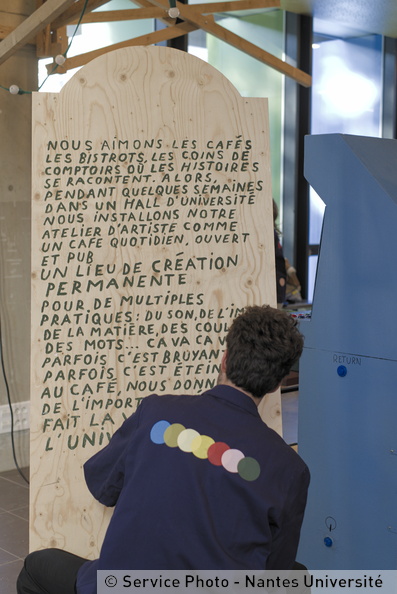 NOUS AIMONS LES CAFÉS
LES BISTROTS, LES COINS DE
COMPTOIRS OÙ LES HISTOIRES
SE RACONTENT. ALORS,
PENDANT QUELQUES SEMAINES
DANS UN HALL D'UNIVERSITÉ
NOUS INSTALLONS NOTRE
ATELIER D'ARTISTE COMME
UN CAFE QUOTIDIEN, OUVERT
ET PUB
UN LIEU DE CRÉATION
PERMANENTE
POUR DE MULTIPLES
PRATIQUES : DU SON, DE L'IM
DE LA MATIÈRE, DES COUL
DES MOTS... ÇA VA ÇA V
PARFOIS C'EST BRUYAN
PARFOIS C'EST ÉTEIN
AU CAFÉ, NOUS DONN
DE L'IMPORT
FAIT LA
L'UNIV
RETURN
© Service Photo - Nantes Université